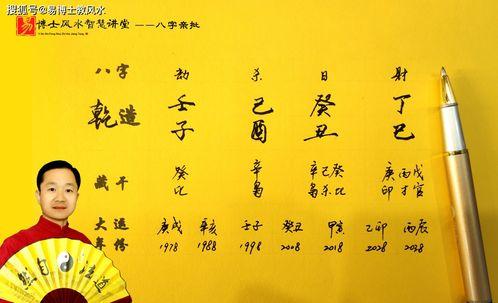 搜狐号@易博士教风水
易 博士风水智慧讲堂 ——八字亲批
八字 劫 杀 日 财
乾造 壬 己 癸 丁
子 酉 丑 巳
藏干 癸 辛 辛己癸 庚丙戊
比 枭 枭杀比 印才官
大运 庚戌 辛亥 壬子 癸丑 甲寅 乙卯 丙辰
年份 1978 1988 1998 2008 2018 2028 2038